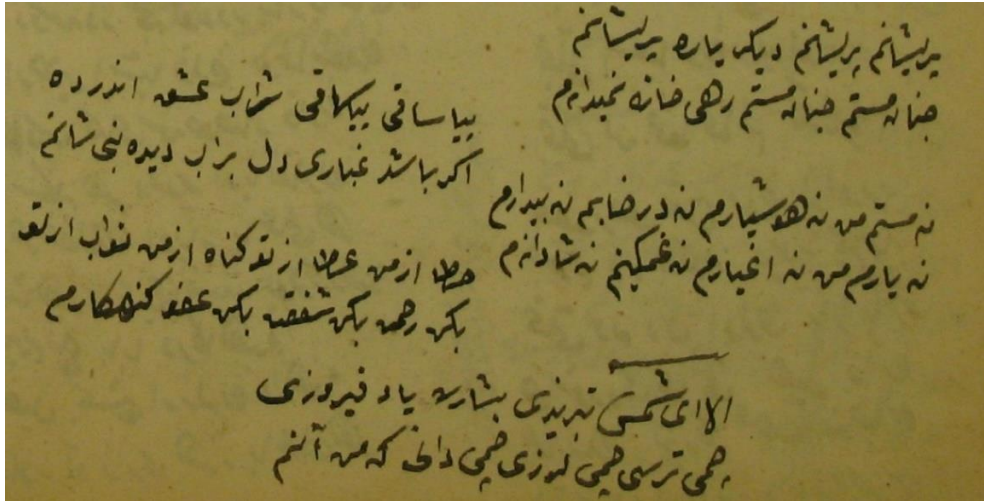 پریشانم پریشانم دیگر باره پریشانم
چنان مستم چنان مستم رهی خانه نمیدانم
بیا ساقی بیکباقی شراب عشق اندر ده
اگر باشد غباری دل براب دیده بنشانم
نه مستم من نه هوشیارم نه در خابم نه بیدارم
نه یارم من نه اغیارم نه غمکینم نه شادانم
خطا از من عطا از تو کناه از من ثواب از تو
بکن رحمت بکن شفقت بکن عفو کنهکارم
الا ای شمس تبریزی بشارت یاد فیروزی
چمی ترسی چمی لرزی چمی دانی که من آنم